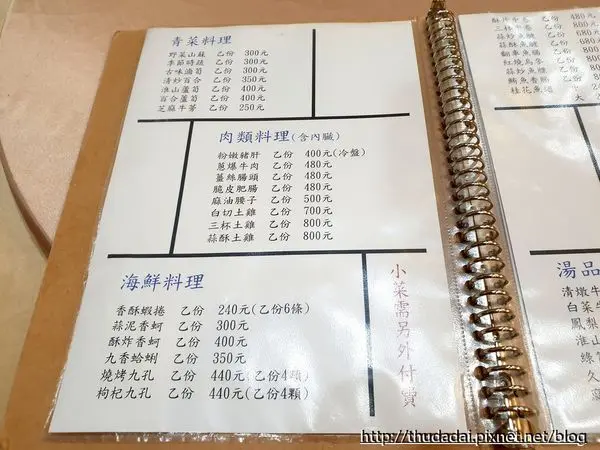 青菜料理
野菜山蘇 乙份 300元
季節時蔬 乙份 300元
古味滷筍 乙份 300元
清炒百合 乙份 350元
淮山蘆筍 乙份 400元
百合蘆筍 乙份 400元
芝麻牛蒡 乙份 250元
肉類料理(含內臟)
粉嫩豬肝 乙份 400元(冷盤)
蔥爆牛肉 乙份 480元
薑絲腸頭 乙份 480元
脆皮肥腸 乙份 480元
麻油腰子 乙份 500元
白切土雞 乙份 700元
三杯土雞 乙份 800元
蒜酥土雞 乙份 800元
海鮮料理
香酥蝦捲 乙份 240元(乙份6條)
蒜泥香蚵 乙份 300元
酥炸香蚵 乙份 400元
九香蛤蜊 乙份 350元
燒烤九孔 乙份 440元(乙份4顆)
枸杞九孔 乙份 440元(乙份4顆)
小菜需另外付費
酥炸中卷 乙份 480
三杯中卷 乙份
蒜炒魚腱 乙份 680
蒜酥魚腱 乙份 680
翻車魚腸 乙份 800
紅燒烏參 乙份
蒜炒魚鰾 乙份
鮪魚香腸 乙份
桂花魚翅 中
大
湯品
清燉牛
白菜
鳳梨
淮山
綠